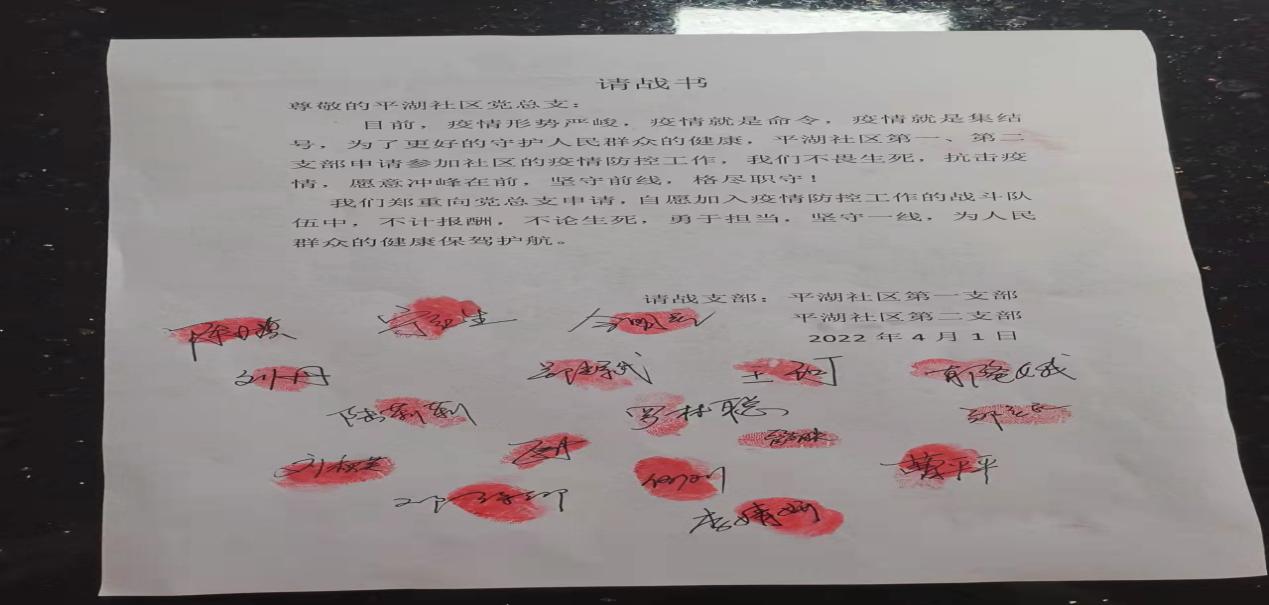 请战书
尊敬的平湖社区党总支：
目前，疫情形势严峻，疫情就是命令，疫情就是集结
号，为了更好的守护人民群众的健康，平湖社区第一、第二
支部申请参加社区的疫情防控工作，我们不畏生死，抗击疫
情，愿意冲峰在前，坚守前线，格尽职守！
我们郑重向党总支申请，自愿加入疫情防控工作的战斗队
伍中，不计报酬，不论生死，勇于担当，坚守一线，为人民
群众的健康保驾护航。
请战支部：平湖社区第一支部
平湖社区第二支部
2022年4月1日
刘丹
陆莉莉 罗林聪